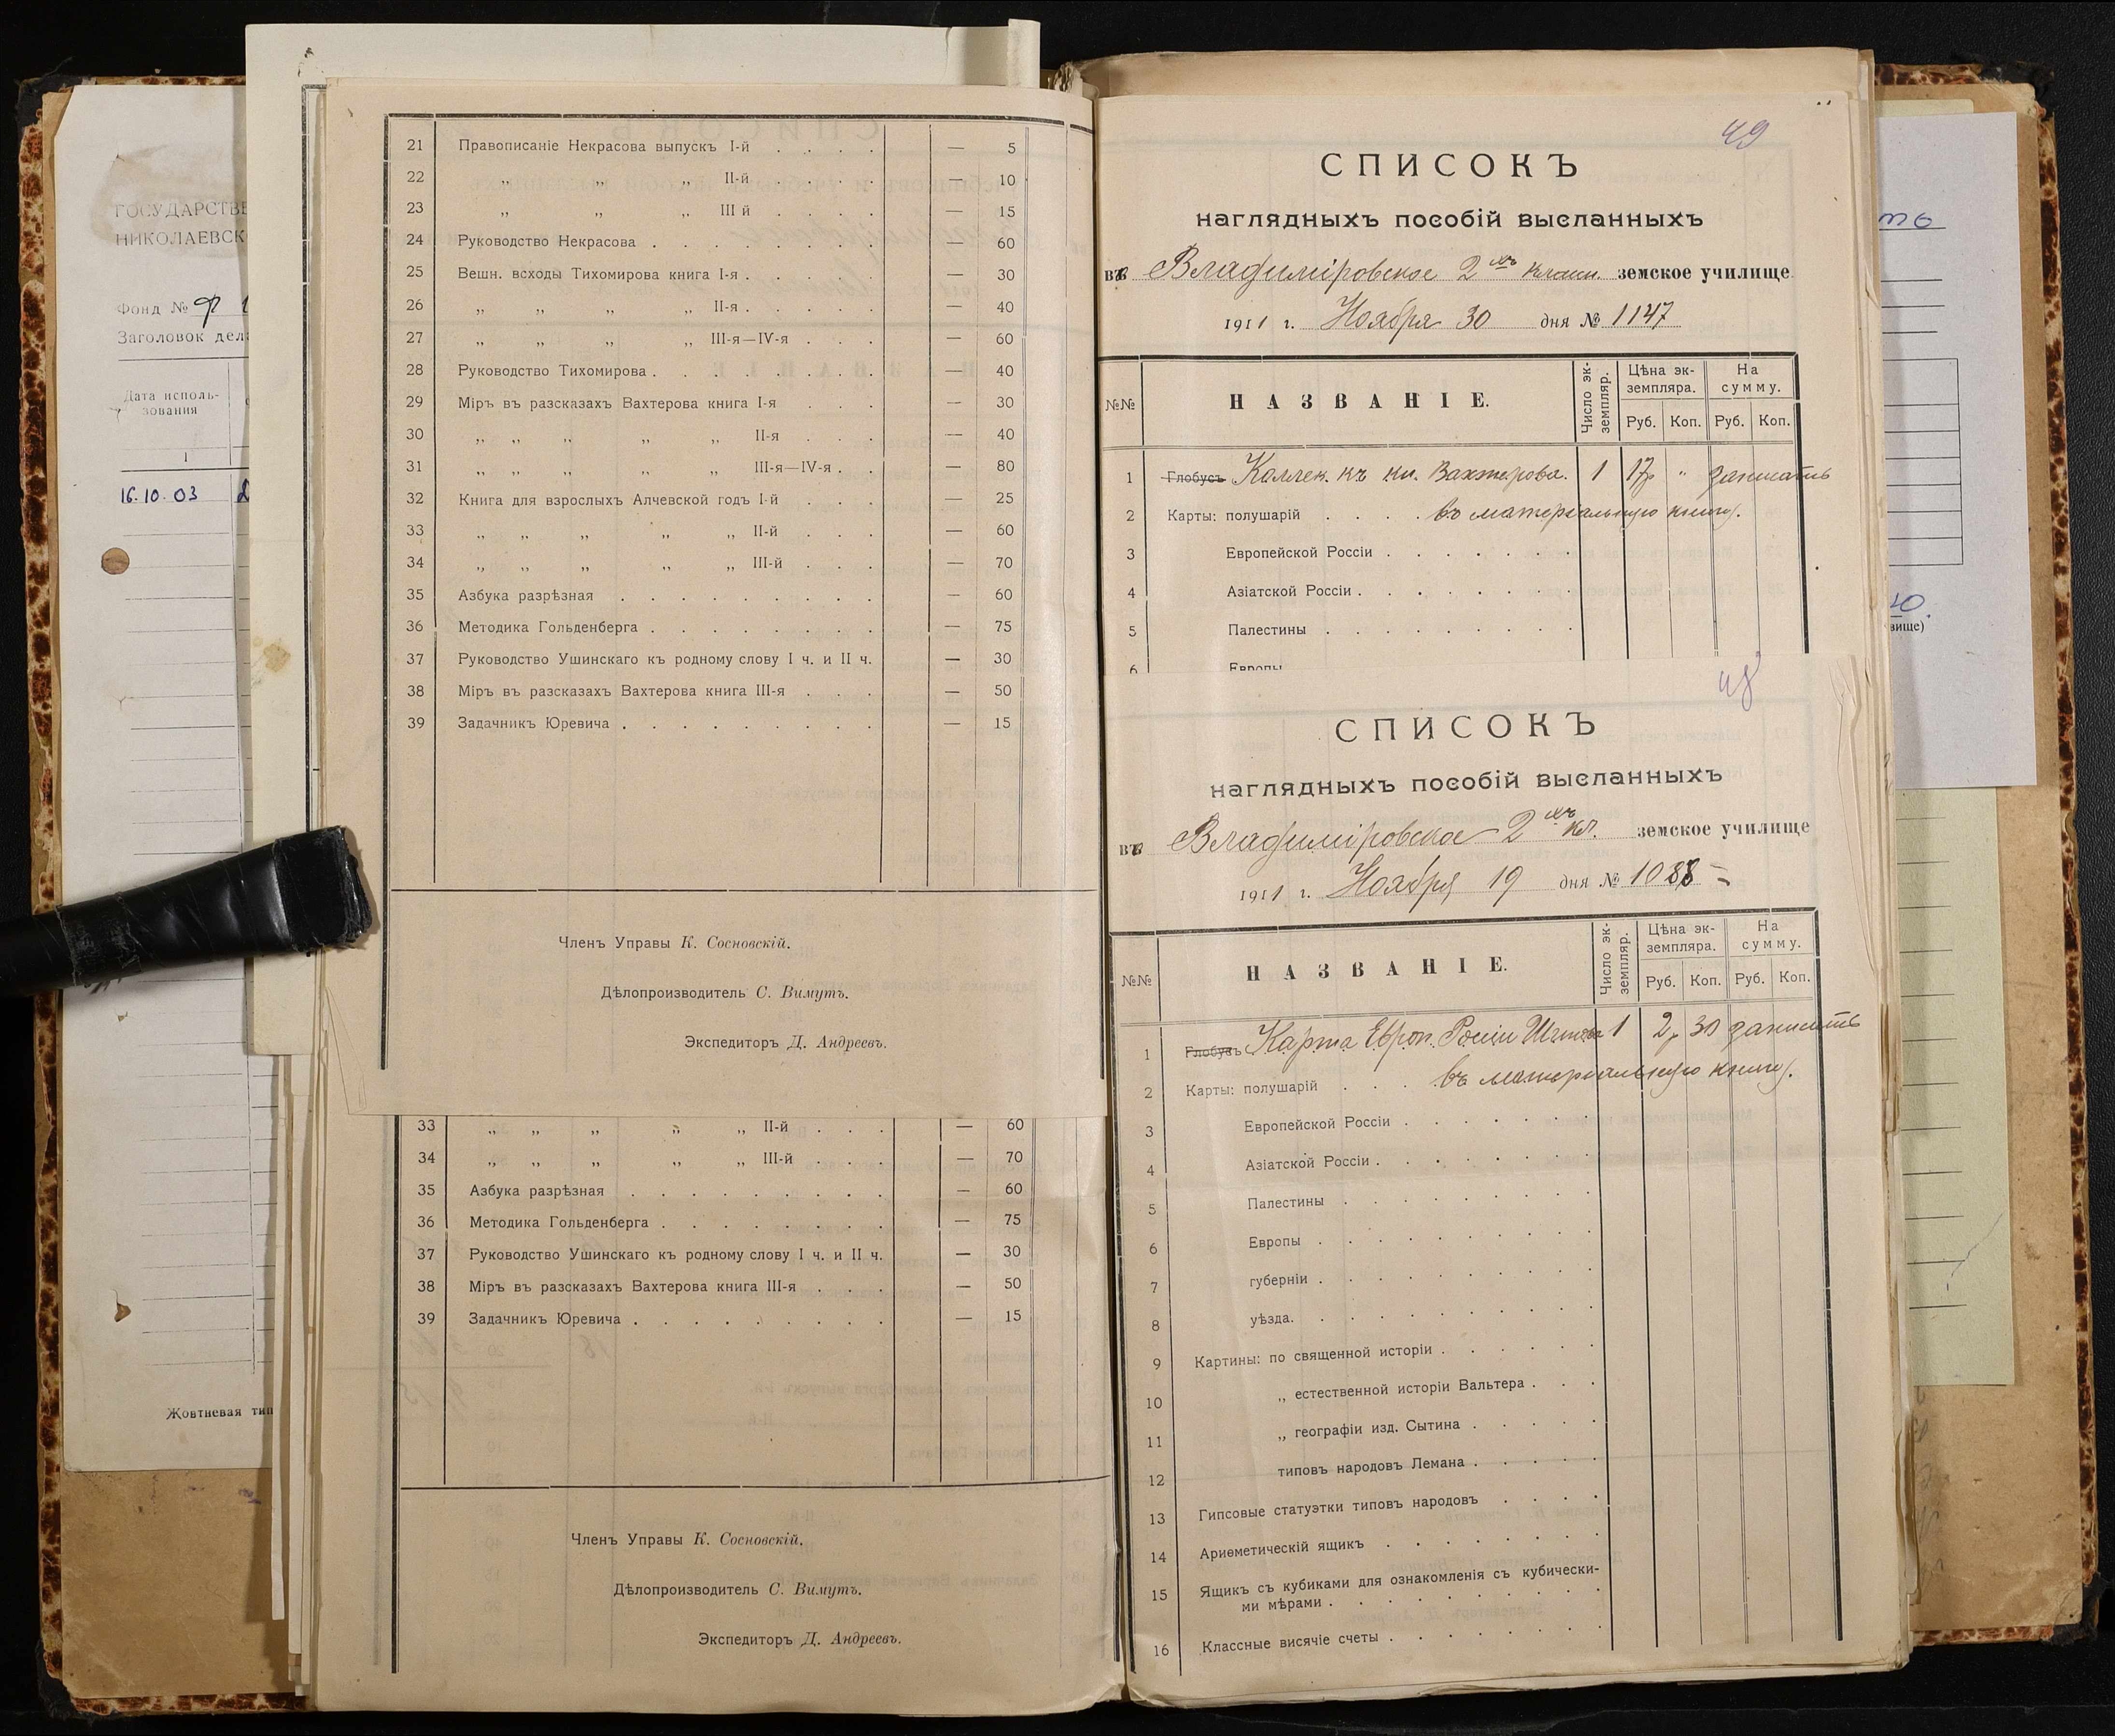 ГОСУДАРСТВЕ
НИКОЛАЕВСК
Фонд №
Заголовок дел
Дата исполь-
зования
1
16.10.03
Жовтневая тип
21 Правописаніе Некрасова выпускъ I-й . . . . — 5
22 „ „ „ II-й . . . . — 10
23 „ „ „ III й . . . . — 15
24 Руководство Некрасова . . . . . . . . — 60
25 Вешн. всходы Тихомирова книга I-я . . . . . — 30
26 „ „ „ „ II-я . . . . . — 40
27 „ „ „ „ III-я—IV-я . . . — 60
28 Руководство Тихомирова . . . . . . . . — 40
29 Міръ въ разсказахъ Вахтерова книга I-я . . . — 30
30 „ „ „ „ „ II-я . . . — 40
31 „ „ „ „ „ III-я—IV-я . . — 80
32 Книга для взрослыхъ Алчевской годъ I-й . . . — 25
33 „ „ „ „ „ II-й . . . — 60
34 „ „ „ „ „ III-й . . . — 70
35 Азбука разрѣзная . . . . . . . . . — 60
36 Методика Гольденберга . . . . . . . . — 75
37 Руководство Ушинскаго къ родному слову I ч. и II ч. — 30
38 Міръ въ разсказахъ Вахтерова книга III-я . . . — 50
39 Задачникъ Юревича . . . . . . . . . — 15
Членъ Управы К. Сосновскій.
Дѣлопроизводитель С. Вимутъ.
Экспедиторъ Д. Андреевъ.
33 „ „ „ „ „ II-й . . . — 60
34 „ „ „ „ „ III-й . . . — 70
35 Азбука разрѣзная . . . . . . . . . — 60
36 Методика Гольденберга . . . . . . . . — 75
37 Руководство Ушинскаго къ родному слову I ч. и II ч. — 30
38 Міръ въ разсказахъ Вахтерова книга III-я . . . — 50
39 Задачникъ Юревича . . . . . . . . . — 15
Членъ Управы К. Сосновскій.
Дѣлопроизводитель С. Вимутъ.
Экспедиторъ Д. Андреевъ.
49
СПИСОКЪ
наглядныхъ пособій высланныхъ
въ Владиміровское 2 хъ класн. земское училище
1911 г. Ноября 30 дня № 1147
№№ НАЗВАНІЕ. Число эк-земпляр. Цѣна эк-земпляра. На сумму.
Руб. Коп. Руб. Коп.
1 Глобусъ Коллек. къ кн. Вахтерова. 1 17р „ записать
2 Карты: полушарій . . . . во матеріальную книгу.
3 Европейской Россіи . . . . . . .
4 Азіатской Россіи . . . . . . . .
5 Палестины . . . . . . . . .
6 Европы
48
СПИСОКЪ
наглядныхъ пособій высланныхъ
въ Владиміровское 2 хъ кл. земское училище
1911 г. Ноября 19 дня № 1088 =
№№ НАЗВАНІЕ. Число эк-земпляр. Цѣна эк-земпляра. На сумму.
Руб. Коп. Руб. Коп.
1 Глобусъ Карта Европ. Россіи 1 2р 30 записать
2 Карты: полушарій . . . въ матеріальную книгу.
3 Европейской Россіи . . . . . . .
4 Азіатской Россіи . . . . . . . .
5 Палестины . . . . . . . . .
6 Европы . . . . . . . . . .
7 губерніи . . . . . . . . . .
8 уѣзда. . . . . . . . . . .
9 Картины: по священной исторіи . . . . . .
10 „ естественной исторіи Вальтера . . .
11 „ географіи изд. Сытина . . . . .
12 типовъ народовъ Лемана . . . . .
13 Гипсовые статуэтки типовъ народовъ . . . .
14 Ариѳметическій ящикъ . . . . . . . .
15 Ящикъ съ кубиками для ознакомленія съ кубически-
ми мѣрами . . . . . . . . . .
16 Классные висячіе счеты . . . . . . . .
вище)